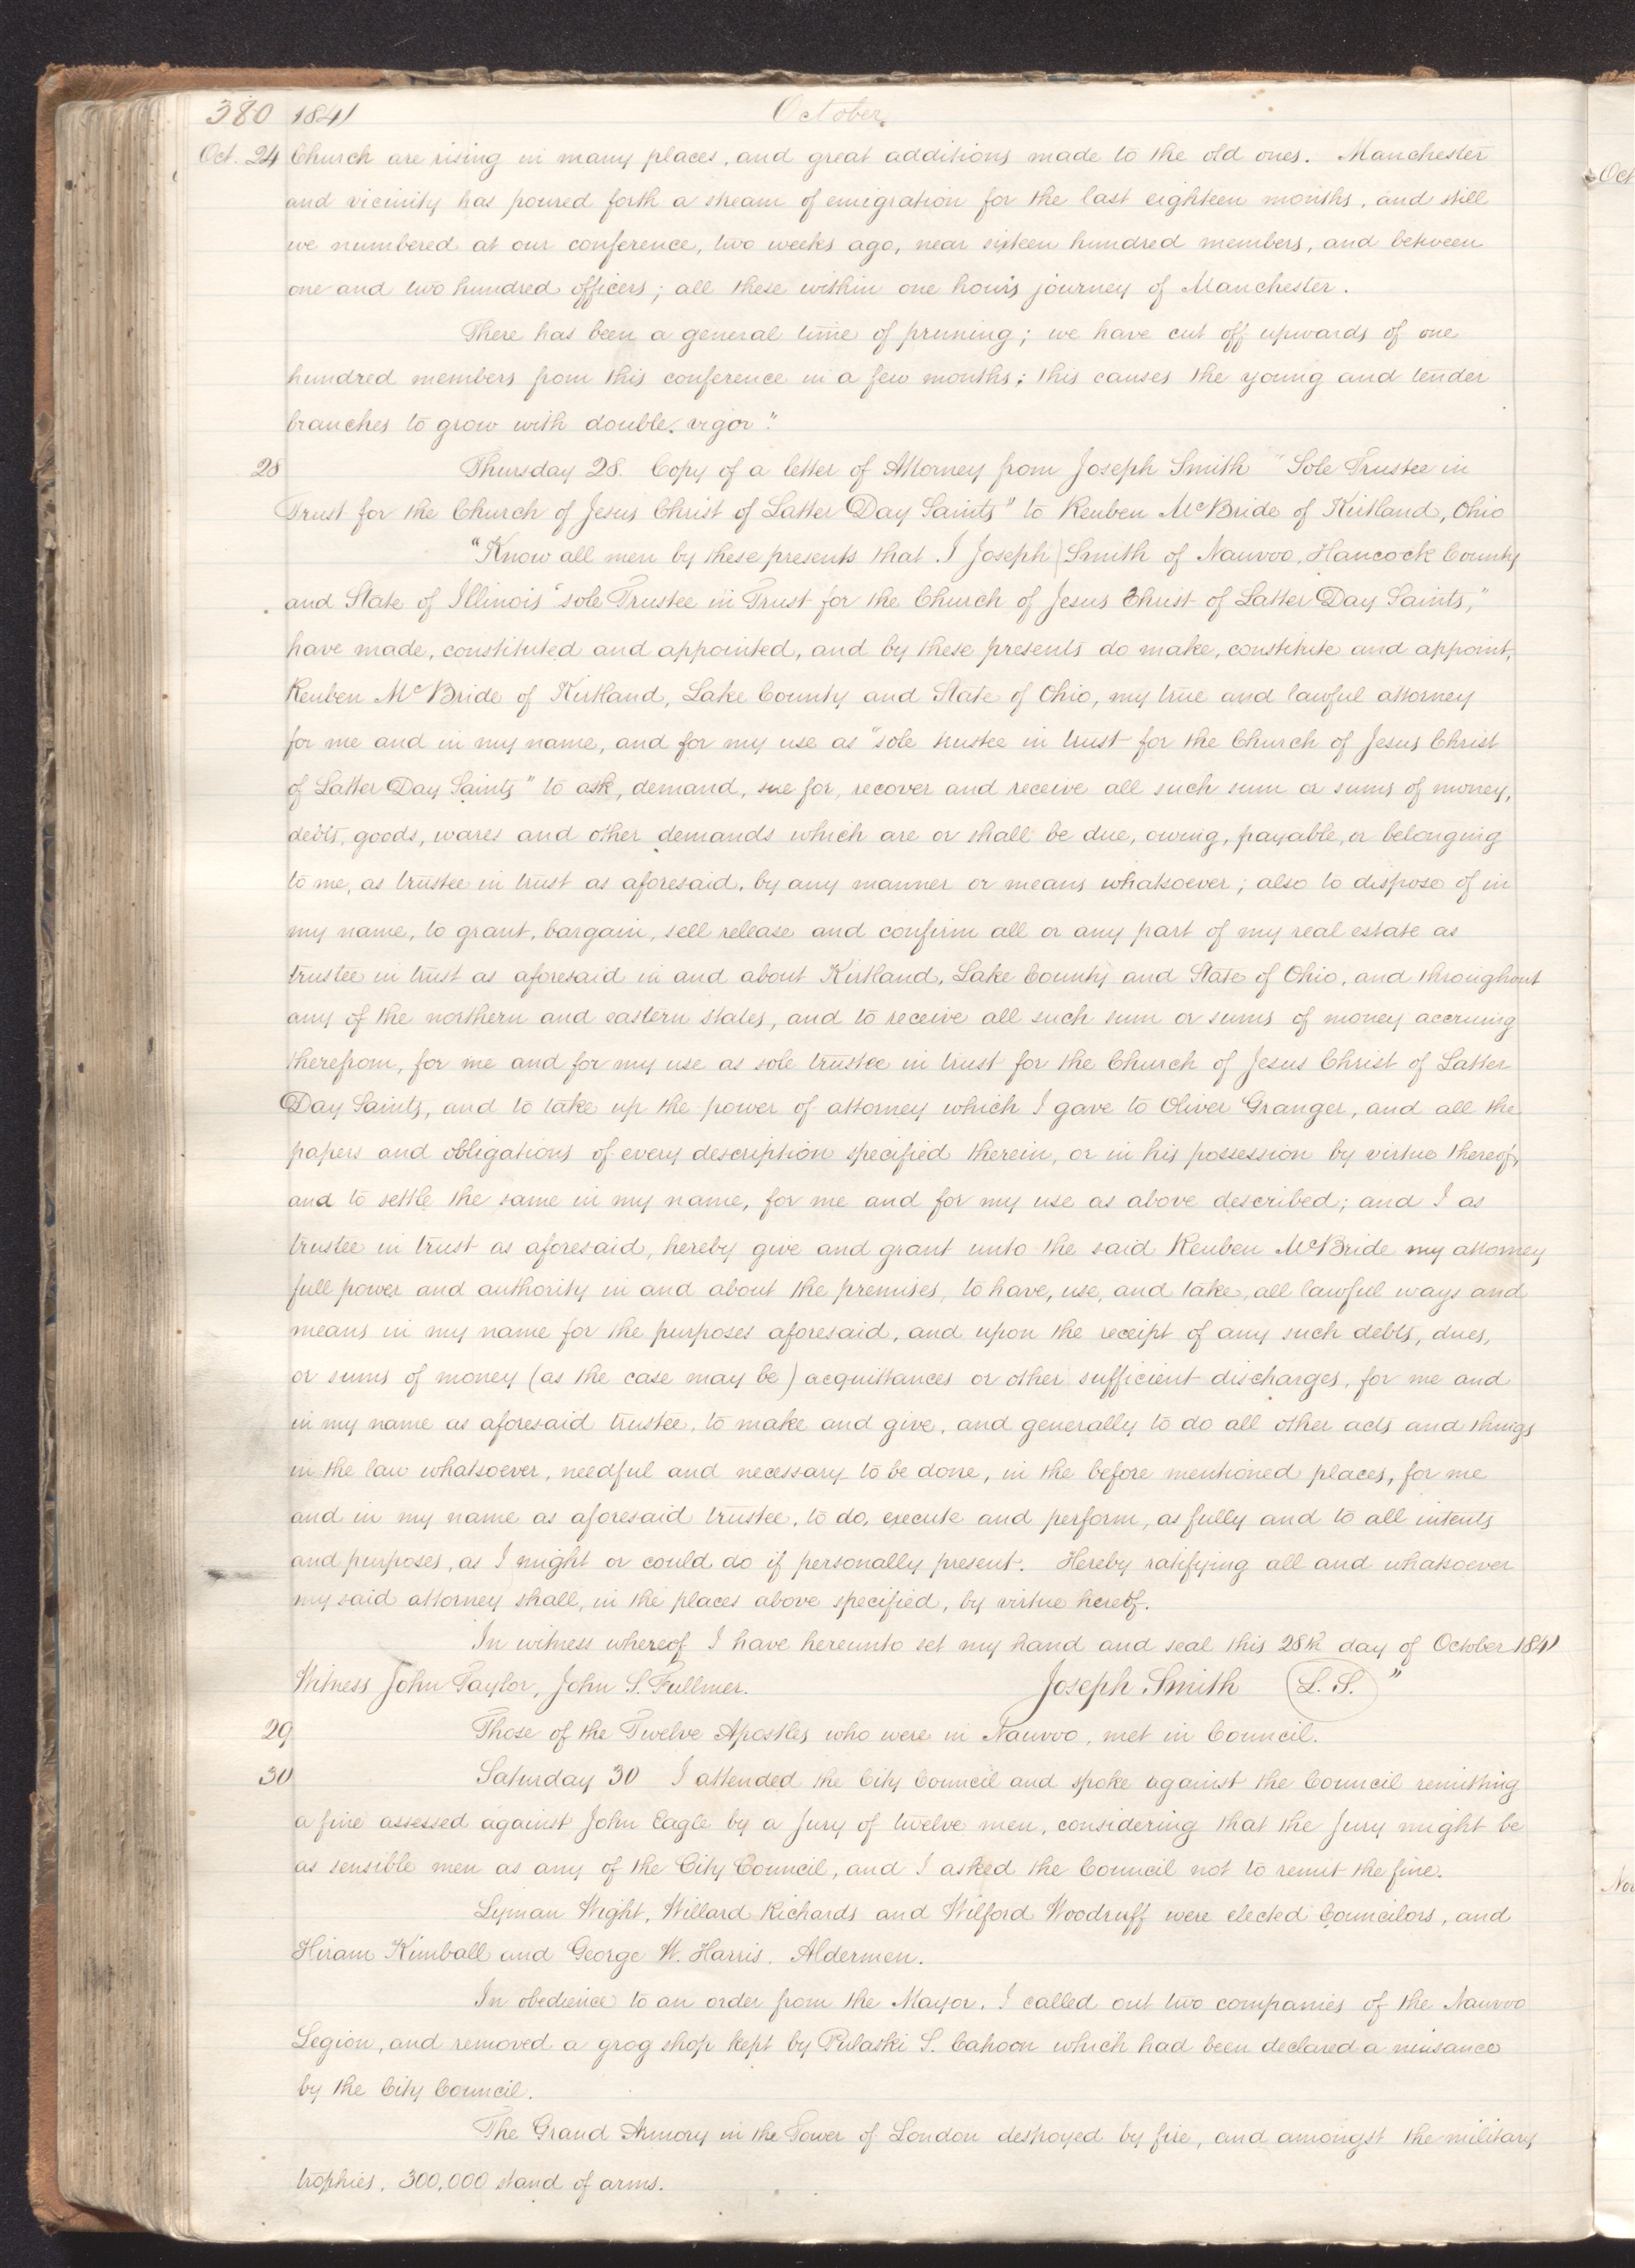 380 1841 October.
Oct. 24 Church are rising in many places, and great additions made to the old ones. Manchester
and vicinity has poured forth a stream of emigration for the last eighteen months, and still
we numbered at our conference, two weeks ago, near sixteen hundred members, and between
one and two hundred officers; all these within one hour's journey of Manchester.
There has been a general time of pruning; we have cut off upwards of one
hundred members from this conference in a few months; this causes the young and tender
branches to grow with double vigor."
28 Thursday 28. Copy of a letter of Attorney from Joseph Smith "Sole Trustee in
Trust for the Church of Jesus Christ of Latter Day Saints" to Reuben McBride of Kirtland, Ohio
"Know all men by these presents that I Joseph Smith of Nauvoo, Hancock County
and State of Illinois "sole Trustee in Trust for the Church of Jesus Christ of Latter Day Saints,"
have made, constituted and appointed, and by these presents do make, constitute and appoint,
Reuben McBride of Kirtland, Lake County and State of Ohio, my true and lawful attorney
for me and in my name, and for my use as "sole trustee in trust for the Church of Jesus Christ
of Latter Day Saints" to ask, demand, sue for, recover and receive all such sum or sums of money,
debts, goods, wares and other demands which are or shall be due, owing, payable, or belonging
to me, as trustee in trust as aforesaid, by any manner or means whatsoever; also to dispose of in
my name, to grant, bargain, sell release and confirm all or any part of my real estate as
trustee in trust as aforesaid in and about Kirtland, Lake County and State of Ohio, and throughout
any of the northern and eastern states, and to receive all such sum or sums of money accruing
therefrom, for me and for my use as sole trustee in trust for the Church of Jesus Christ of Latter
Day Saints, and to take up the power of attorney which I gave to Oliver Granger, and all the
papers and obligations of every description specified therein, or in his possession by virtue thereof,
and to settle the same in my name, for me and for my use as above described; and I as
trustee in trust as aforesaid, hereby give and grant unto the said Reuben McBride my attorney
full power and authority in and about the premises, to have, use, and take, all lawful ways and
means in my name for the purposes aforesaid, and upon the receipt of any such debts, dues,
or sums of money (as the case may be) acquittances or other sufficient discharges, for me and
in my name as aforesaid trustee, to make and give, and generally to do all other acts and things
in the law whatsoever, needful and necessary to be done, in the before mentioned places, for me
and in my name as aforesaid trustee, to do, execute and perform, as fully and to all intents
and purposes, as I might or could do if personally present. Hereby ratifying all and whatsoever
my said attorney shall, in the places above specified, by virtue hereof.
In witness whereof I have hereunto set my hand and seal this 28th day of October 1841
Witness John Taylor, John S. Fullmer. Joseph Smith L. S. "
29 Those of the Twelve Apostles who were in Nauvoo, met in Council.
30 Saturday 30 I attended the City Council and spoke against the Council remitting
a fine assessed against John Eagle by a Jury of twelve men, considering that the Jury might be
as sensible men as any of the City Council, and I asked the Council not to remit the fine.
Lyman Wight, Willard Richards and Wilford Woodruff were elected Councilors, and
Hiram Kimball and George W. Harris. Aldermen.
In obedience to an order from the Mayor, I called out two companies of the Nauvoo
Legion, and removed a grog shop kept by Pulaski S. Cahoon which had been declared a nuisance
by the City Council.
The Grand Armory in the Tower of London destroyed by fire, and amongst the military
trophies, 300,000 stand of arms.
Oct
Nov